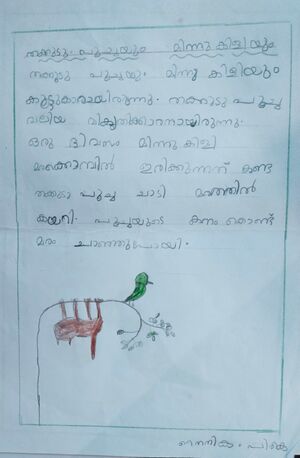 തക്കുടു പൂച്ചയും മിന്നു കിളിയും
തക്കുടു പൂച്ചയും മിന്നു കിളിയും
കൂട്ടുകാരായിരുന്നു. തക്കുടു പൂച്ച
വലിയ വികൃതിക്കാരനായിരുന്നു.
ഒരു ദിവസം മിന്നു കിളി
മരക്കൊമ്പിൽ ഇരിക്കുന്നത് കണ്ട
തക്കുടു പൂച്ച ചാടി മരത്തിൽ
കയറി. പൂച്ചയുടെ കനം കൊണ്ട്
മരം ചാഞ്ഞുപോയി.